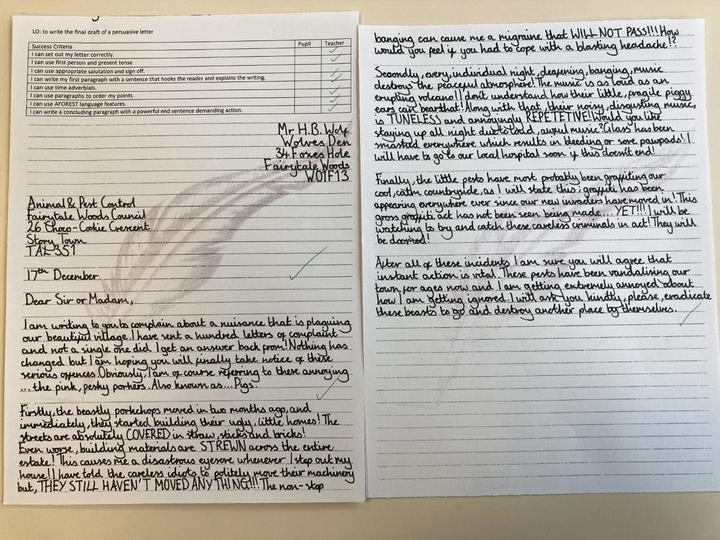 LO: to write the final draft of a persuasive letter
Success Criteria Pupil Teacher
I can set out my letter correctly.
I can use first person and present tense
I can use appropriate salutation and sign off.
I can write my first paragraph with a sentence that hooks the reader and explains the writing.
I can use time adverbials.
I can use paragraphs to order my points.
I can use AFOREST language features.
I can write a concluding paragraph with a powerful end sentence demanding action.
Mr H.B. Wolf
Wolves Den
34 Foxes Hole
Fairytale Woods
WO1F13
Animal & Pest Control
Fairytale Woods Council
26 Choco-Cookie Crescent
Story Town
TAL3S1
17th December
Dear Sir or Madam,
I am writing to you to complain about a nuisance that is plaguing
our beautiful village. I have sent a hundred letters of complaint
and not a single one did I get an answer back from! Nothing has
changed but I am hoping you will finally take notice of these
serious offences. Obviously, I am of course referring to these annoying
... the pink, pesky porkers. Also known as... Pigs.
Firstly, the beastly porkchops moved in two months ago, and
immediately, they started building their ugly, little homes! The
streets are absolutely COVERED in straw, sticks and bricks!
Even worse, building materials are STREWN across the entire
estate! This causes me a disastrous eyesore whenever I step out my
house! I have told the careless idiots to politely move their machinery
but, THEY STILL HAVEN'T MOVED ANYTHING!!! The non-stop
banging can cause me a migraine that WILL NOT PASS!!! How
would you feel if you had to cope with a blasting headache!?
Secondly, every, individual night, deafening, banging, music
destroys the peaceful atmosphere! The music is as loud as an
erupting volcano! I don't understand how their little, fragile piggy
ears can bear that! Along with that, their noisy, disgusting music,
is TUNELESS and annoyingly REPETETIVE! Would you like
staying up all night due to loud, awful music? Glass has been
smashed everywhere which results in bleeding or sore pawpads! I
will have to go to our local hospital soon if this doesn't end!
Finally, the little pests have most probably been graffiting our
cool, calm countryside, as I will state this; graffiti has been
appearing everywhere ever since our new invaders have moved in! This
gross graffiti act has not been seen being made... YET!!! I will be
watching to try and catch these careless criminals in act! They will
be doomed!
After all of these incidents I am sure you will agree that
instant action is vital. These pests have been vandalising our
town for ages now and I am getting extremely annoyed about
how I am getting ignored. I will ask you kindly, please, eradicate
these beasts to go and destroy another place by themselves.